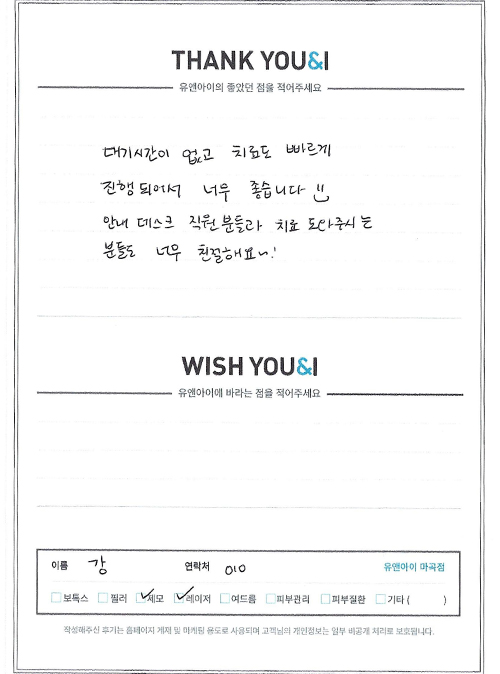 THANK YOU&I
유앤아이의 좋았던 점을 적어주세요
대기시간이 없고 치료도 빠르게
진행되어서 너무 좋습니다
안내 데스크 직원분들과 치료 도와주시는
분들도 너무 친절해요~!
WISH YOU&I
유앤아이에 바라는 점을 적어주세요
이름 강 연락처 010 유앤아이 마곡점
보톡스 필러 제모 레이저 여드름 피부관리 피부질환 기타 ( )
작성해주신 후기는 홈페이지 게재 및 마케팅 용도로 사용되며 고객님의 개인정보는 일부 비공개 처리로 보호됩니다.